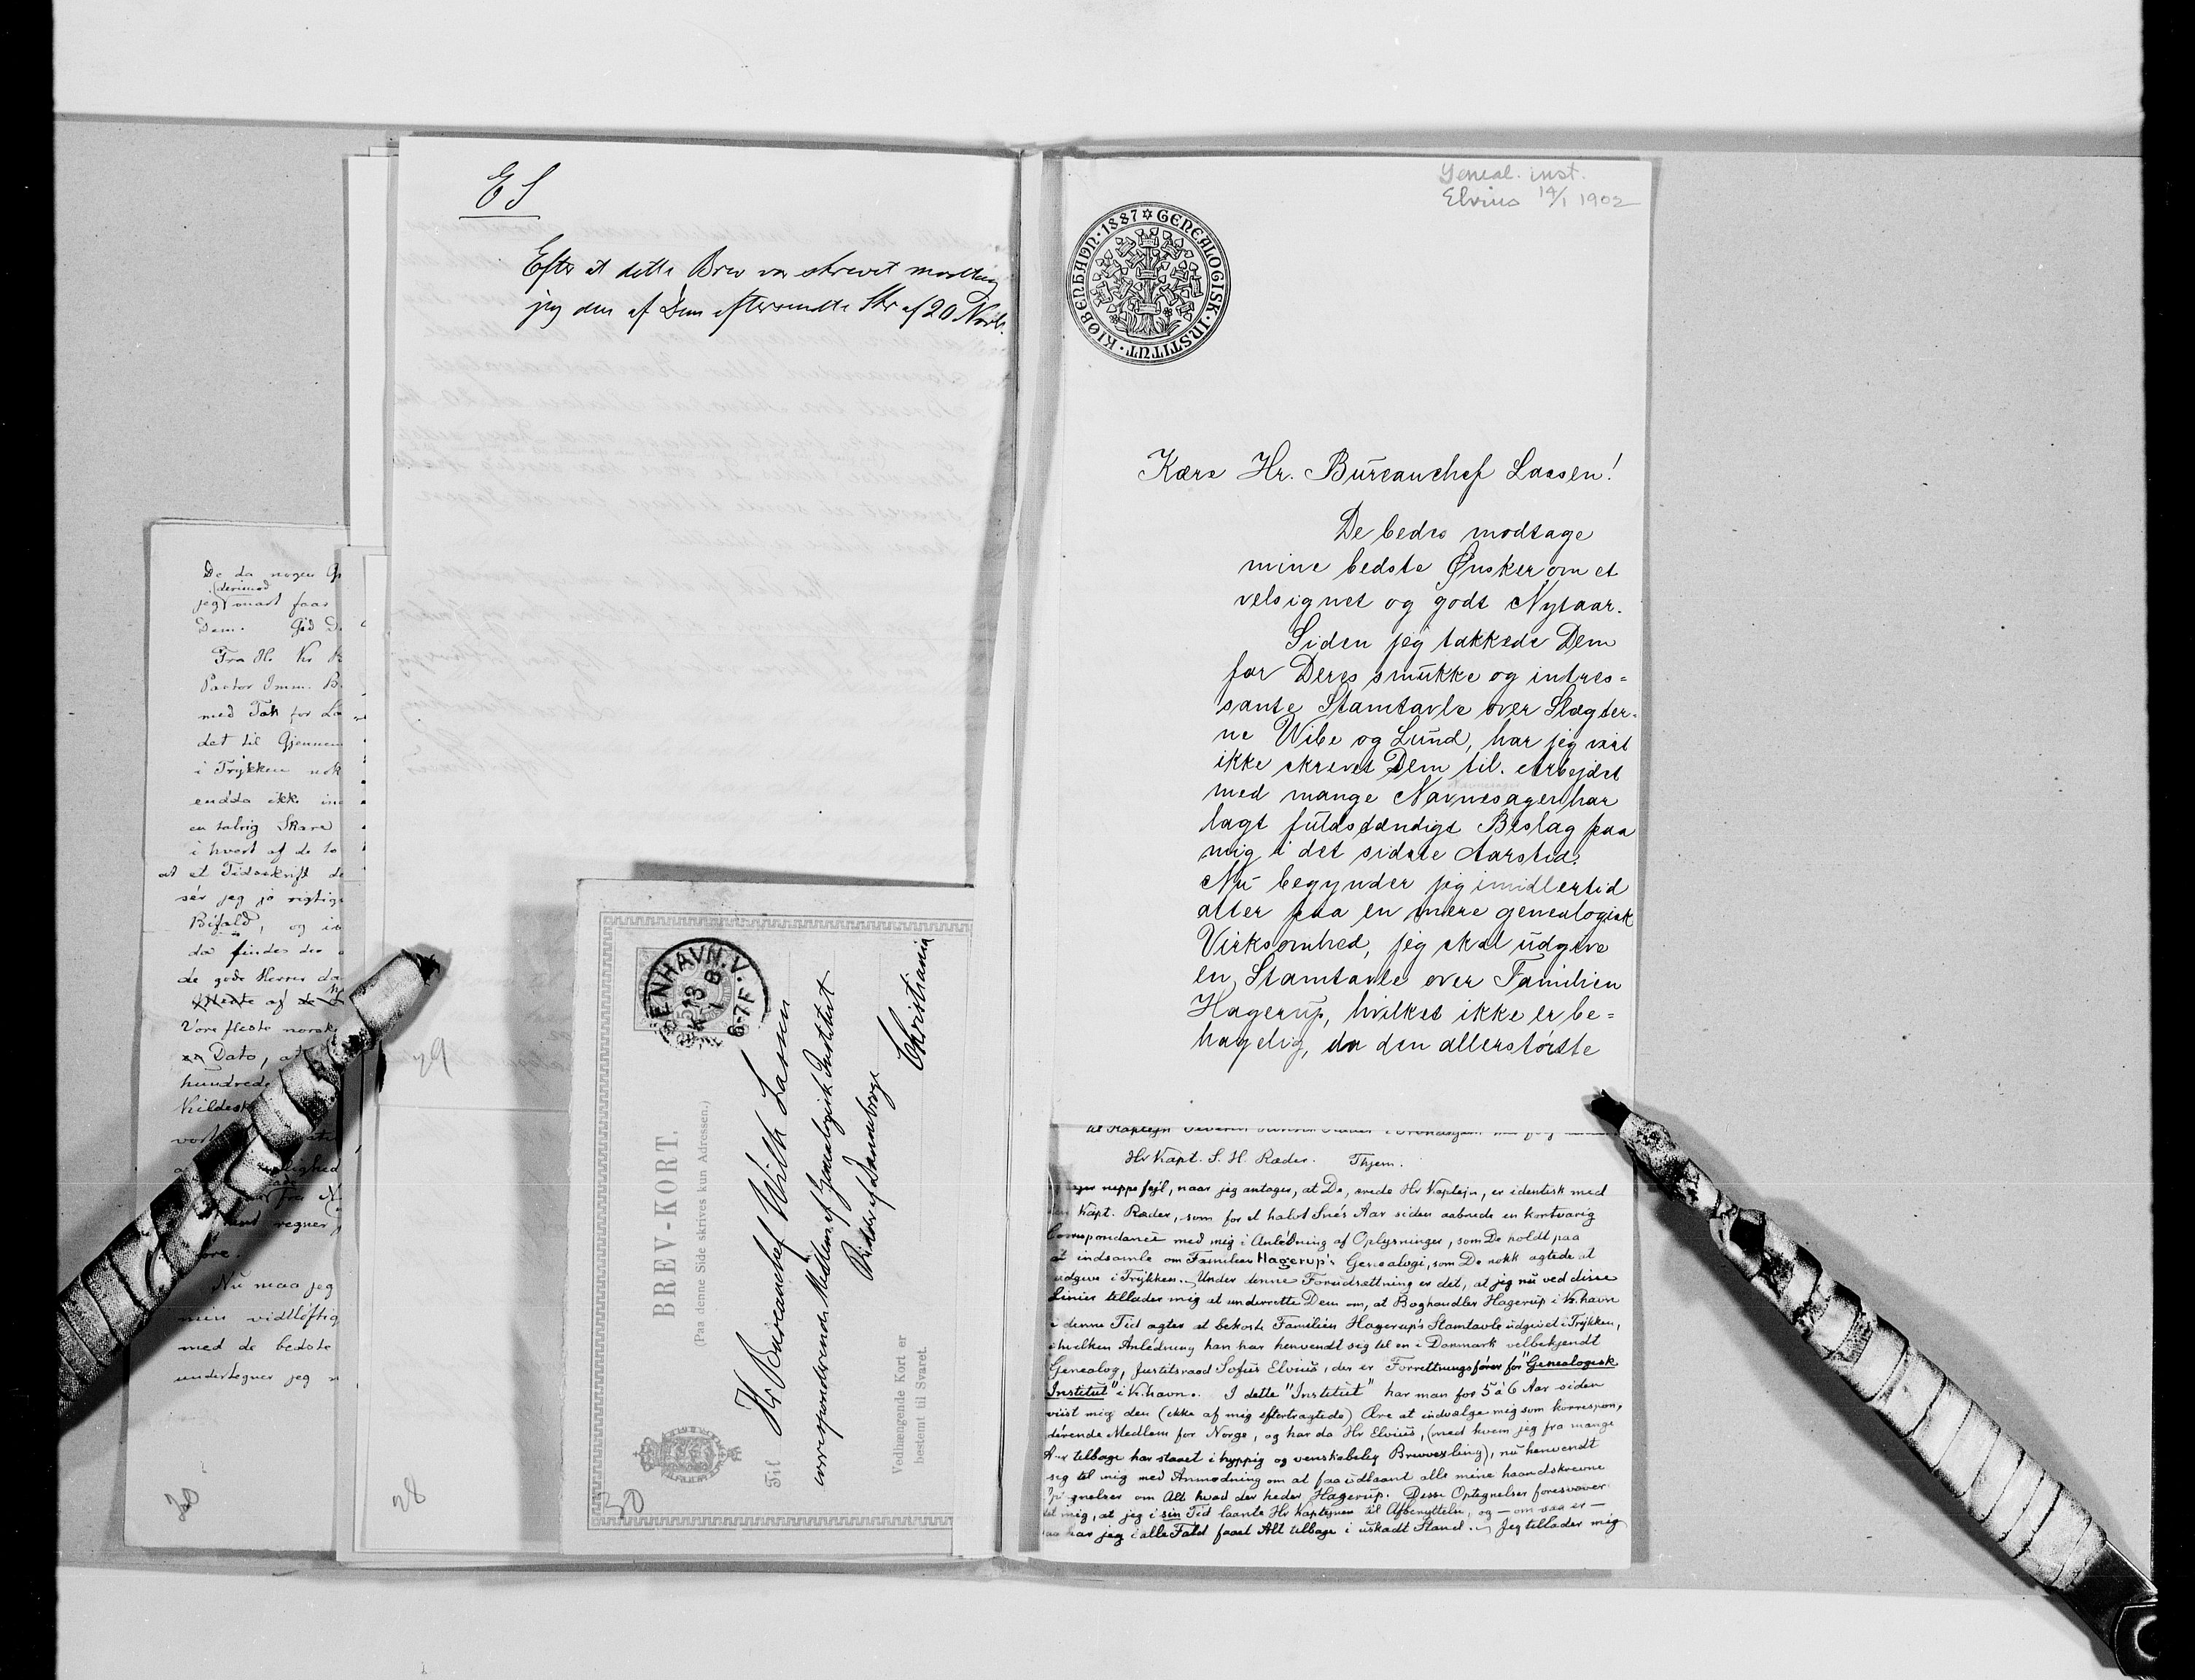 De da nogen
(derimod
jeg snart faar
Dem. Gid D
Fra Hr
Pastor Imm. B.
med Tak for
det til Gjennem
i Trykken nok
endda ikke
en talrig Skare
i hvert af de to
at et Tidsskrift de
sér jeg jo rigtig
Bifald, og
da findes der
de gode Herrer da
af
Vore fleste norske
Dato, a
hundrede
Kildesk
regner
Nu maa jeg
min vidtløftig
med de bedste
undertegner jeg
28
29
ES
Efter at dette Brev var skrevet modtog
jeg den af Dem eftersendte Skr af 20 Novbr.
BREV-KORT.
(Paa denne Side skrives kun Adressen.)
KJØBENHAVN.V.
13
6-7F
Til Hr Bureauchef Wilh Lassen
correspondrende Medlem af Genealogisk Institut
Ridder af Dannebroge
Christiania
Vedhængende Kort er
bestemt til Svaret.
30
Geneal. inst.
Elvius 14/1 1902
GENEALOGISK · INSTITUT · KIØBENHAVN · 1887
Kære Hr. Bureauchef Lassen!
De bedes modtage
mine bedste Ønsker om et
velsignet og godt Nytaar.
Siden jeg takkede Dem
for Deres smukke og intres=
sante Stamtavle over Slægter-
ne Wibe og Lund, har jeg vist
ikke skrevet Dem til. Arbejdet
med mange Navnesager har
lagt fuldstændigt Beslag paa
mig i det sidste Aarstid.
Nu begynder jeg imidlertid
atter paa en mere genealogisk
Virksomhed, jeg skal udgive
en Stamtavle over Familien
Hagerup, hvilket ikke er be=
hagelig, da den allerstørste
Hr Kapt. S. H. Ræder. Thjem.
neppe fejl, naar jeg antager, at De, ærede Hr Kaptejn, er identisk med
den Kapt. Ræder, som for et halvt Snés Aar siden aabnede en kortvarig
Correspondance med mig i Anledning af Oplysninger, som De holdt paa
at indsamle om Familien Hagerup's Genealogi, som De nokk agtede at
udgive i Trykken. Under denne Forudsættning er det, at jeg nu ved disse
Linier tillader mig at underrette Dem om, at Boghandler Hagerup i K.havn
i denne Tid agter at bekoste Familien Hagerup's Stamtavle udgivet i Trykken,
i hvilken Anledning han har henvendt sig til en i Danmark velbekjendt
Genealog, Justitsraad Sofus Elvius, der er Forretningsfører for "Genealogisk
Institut" i K.havn. I dette "Institut" har man for 5 à 6 Aar siden
viist mig den (ikke af mig eftertragtede) Ære at indvælge mig som korrespon,
derende Medlem for Norge, og har da Hr Elvius, (med hvem jeg fra mange
Aar tilbage har staaet i hyppig og venskabelig Brevvexling), nu henvendt
sig til mig med Anmodning om at faa udlaant alle mine haandskrevne
Optegnelser om Alt hvad der heder Hagerup. Disse Optegnelser foresvæver
det mig, at jeg i sin Tid laante Hr Kaptejnen til Afbenyttelse, og — om saa er —
saa har jeg i alle Fald faaet Alt tilbage i uskadt Stand. Jeg tillader mig